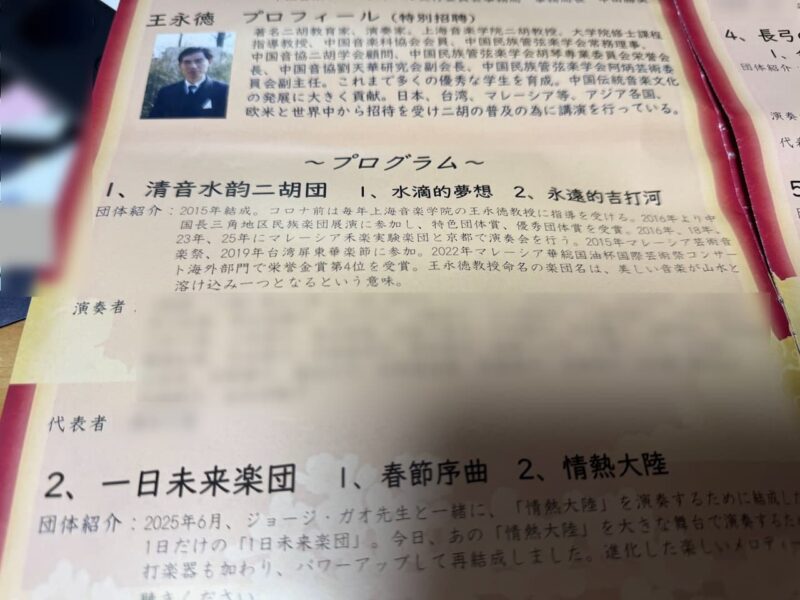 王永德 プロフィール（特別招聘）
著名二胡教育家、演奏家。上海音楽学院二胡教授。大学院修士課程
指導教授、中国音楽科協会会員、中国民族管弦楽学会常務理事、
中国音協二胡学会顧問、中国民族管弦楽学会胡琴専業委員会栄誉会
長、中国音協劉天華研究会副会長、中国民族管弦楽学会阿炳芸術委
員会副主任。これまで多くの優秀な学生を育成。中国伝統音楽文化
の発展に大きく貢献。日本、台湾、マレーシア等、アジア各国、
欧米と世界中から招待を受け二胡の普及の為に講演を行っている。
～プログラム～
1、清音水韵二胡団 1、水滴的夢想 2、永遠的吉打河
団体紹介：2015年結成。コロナ前は毎年上海音楽学院の王永德教授に指導を受ける。2016年より中
国長三角地区民族楽団展演に参加し、特色団体賞、優秀団体賞を受賞。2016年、18年、
23年、25年にマレーシア禾楽実験楽団と京都で演奏会を行う。2015年マレーシア芸術音
楽祭、2019年台湾屏東華楽節に参加。2022年マレーシア華総国油杯国際芸術祭コンサー
ト海外部門で栄誉金賞第4位を受賞。王永德教授命名の楽団名は、美しい音楽が山水と
溶け込み一つとなるという意味。
演奏者：
代表者
2、一日未来楽団 1、春節序曲 2、情熱大陸
団体紹介：2025年6月、ジョージ・ガオ先生と一緒に、「情熱大陸」を演奏するために結成した
1日だけの「1日未来楽団」。今日、あの「情熱大陸」を大きな舞台で演奏するため
打楽器も加わり、パワーアップして再結成しました。進化した楽しいメロディー
聴きください
4、長弓
1、
団体紹介：
演奏
代表
5